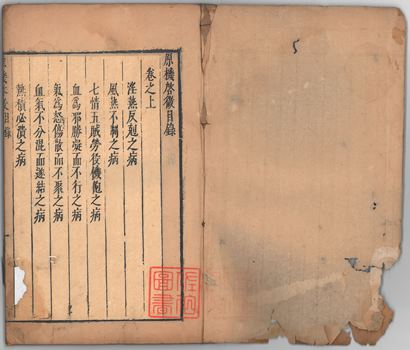 原機啓微目錄
卷之上
淫熱反剋之病
風熱不制之病
七情五賊勞役饑飽之病
血為邪勝凝而不行之病
氣為怒傷散而不聚之病
血氣不分混而遂結之病
熱積必潰之病